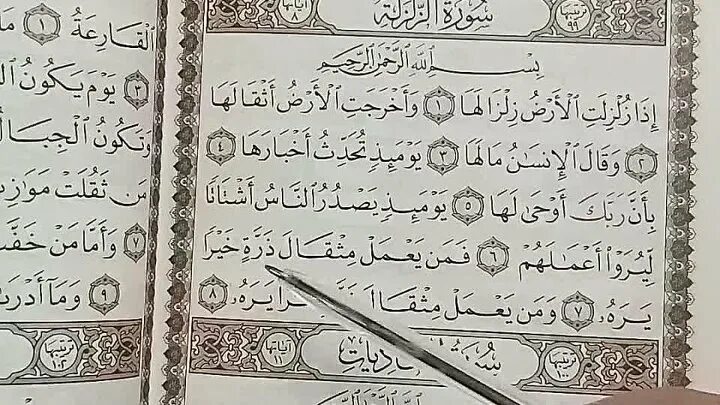 ترتيبها ٩٩ سُورَةُ الزَّلْزَلَةِ آياتها ٨
بِسْمِ ٱللَّهِ ٱلرَّحْمَٰنِ ٱلرَّحِيمِ
إِذَا زُلْزِلَتِ ٱلْأَرْضُ زِلْزَالَهَا ١ وَأَخْرَجَتِ ٱلْأَرْضُ أَثْقَالَهَا
٢ وَقَالَ ٱلْإِنسَٰنُ مَا لَهَا ٣ يَوْمَئِذٍ تُحَدِّثُ أَخْبَارَهَا ٤
بِأَنَّ رَبَّكَ أَوْحَىٰ لَهَا ٥ يَوْمَئِذٍ يَصْدُرُ ٱلنَّاسُ أَشْتَاتًا
لِّيُرَوْا۟ أَعْمَٰلَهُمْ ٦ فَمَن يَعْمَلْ مِثْقَالَ ذَرَّةٍ خَيْرًا
يَرَهُۥ ٧ وَمَن يَعْمَلْ مِثْقَالَ يَرَهُۥ ٨
ترتيبها ١٠٠ آياتها ١١
ٱلْقَارِعَةُ ١
٣ يَوْمَ يَكُونُ
وَتَكُونُ ٱلْجِبَالُ
مَن ثَقُلَتْ
٧ وَأَمَّا مَنْ خَفَّتْ
٩ وَمَآ
ترتيبها ١٠٢